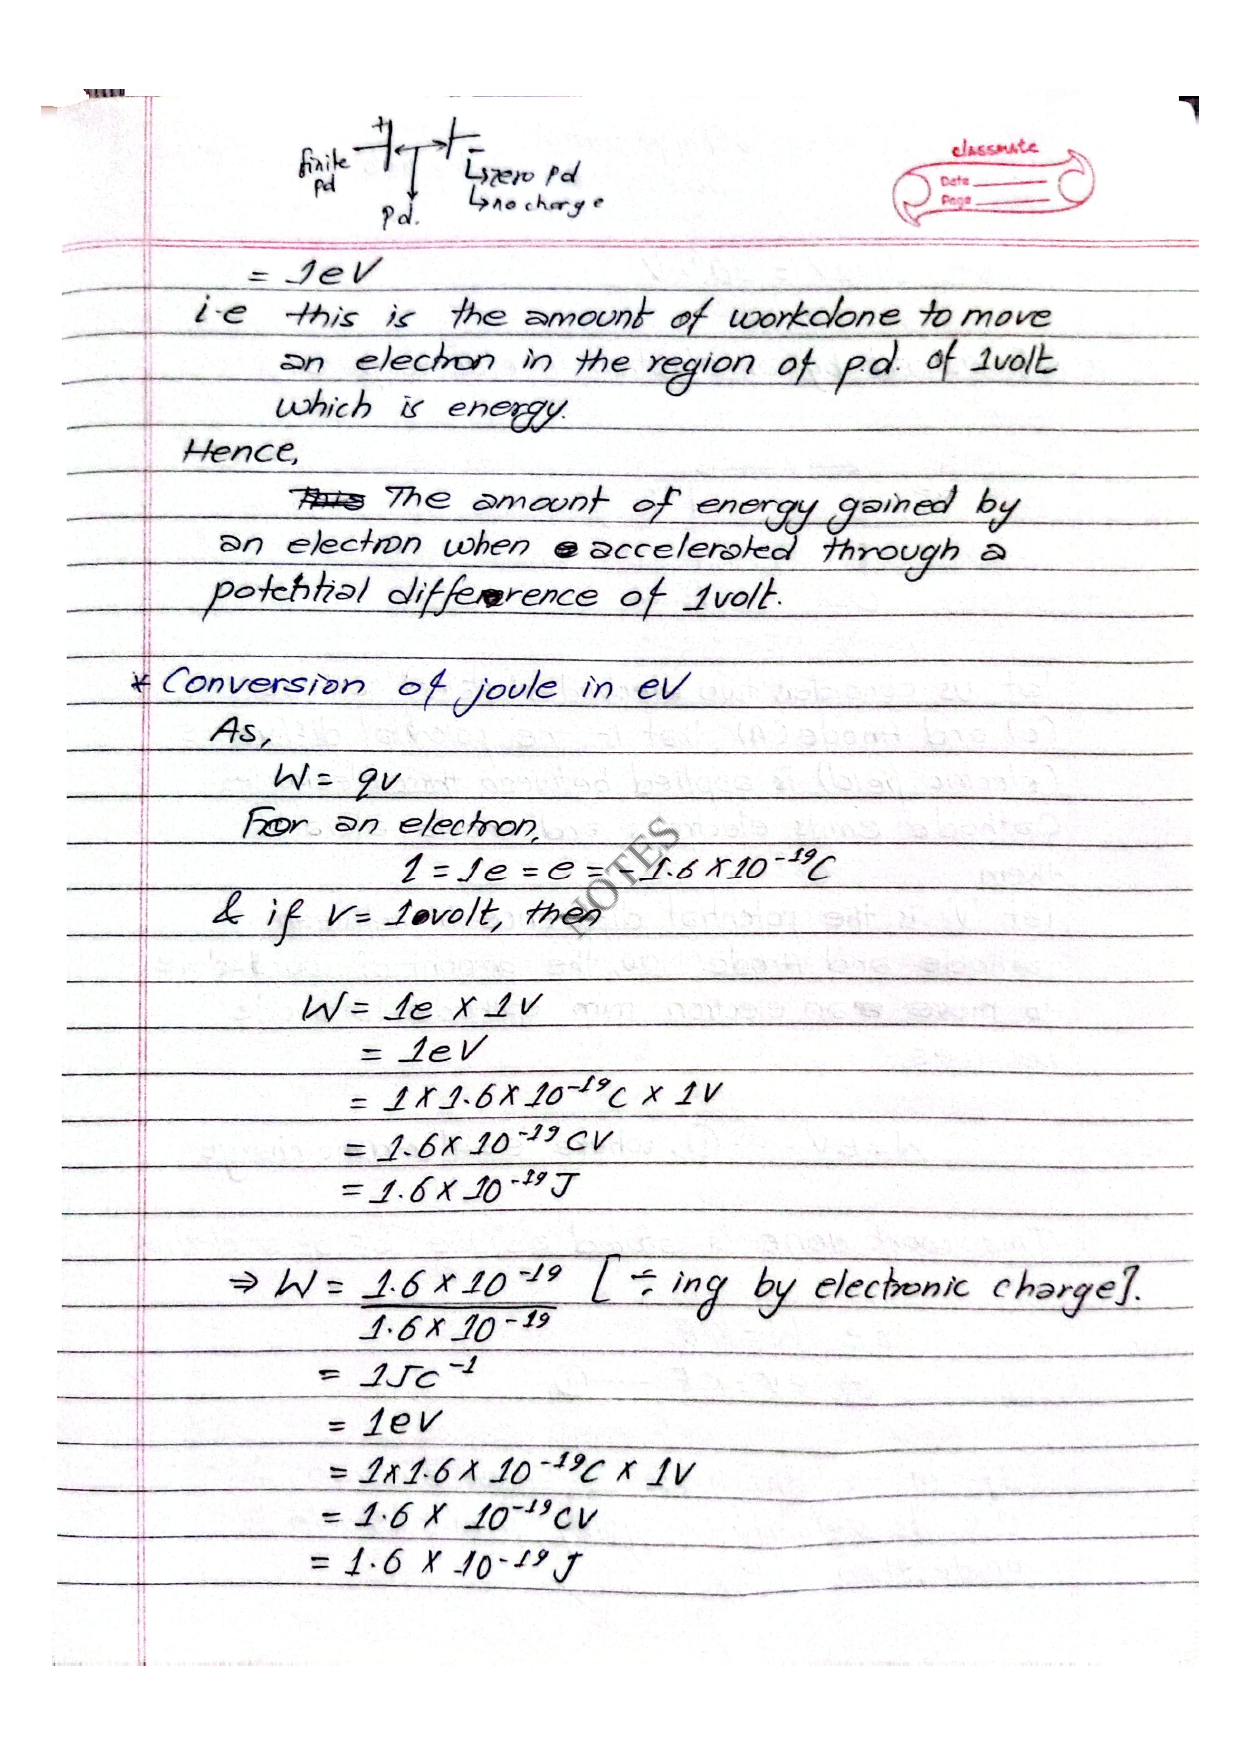 +
finite
pd
-
↳ zero pd
↳ no charge
pd.
classmate
Date
Page
= 1eV
i.e this is the amount of workdone to move
an electron in the region of p.d. of 1volt
which is energy.
Hence,
This The amount of energy gained by
an electron when accelerated through a
potential difference of 1volt.
* Conversion of joule in eV
As,
W = qv
For an electron,
1 = 1e = e = -1.6 X 10⁻¹⁹C
& if V = 1 volt, then
NOTES
W = 1e X 1V
= 1eV
= 1 X 1.6 X 10⁻¹⁹C X 1V
= 1.6 X 10⁻¹⁹ CV
= 1.6 X 10⁻¹⁹ J
⇒ W = 1.6 X 10⁻¹⁹ / 1.6 X 10⁻¹⁹ [÷ing by electronic charge].
= 1JC⁻¹
= 1eV
= 1x1.6 X 10⁻¹⁹C X 1V
= 1.6 X 10⁻¹⁹CV
= 1.6 X 10⁻¹⁹ J